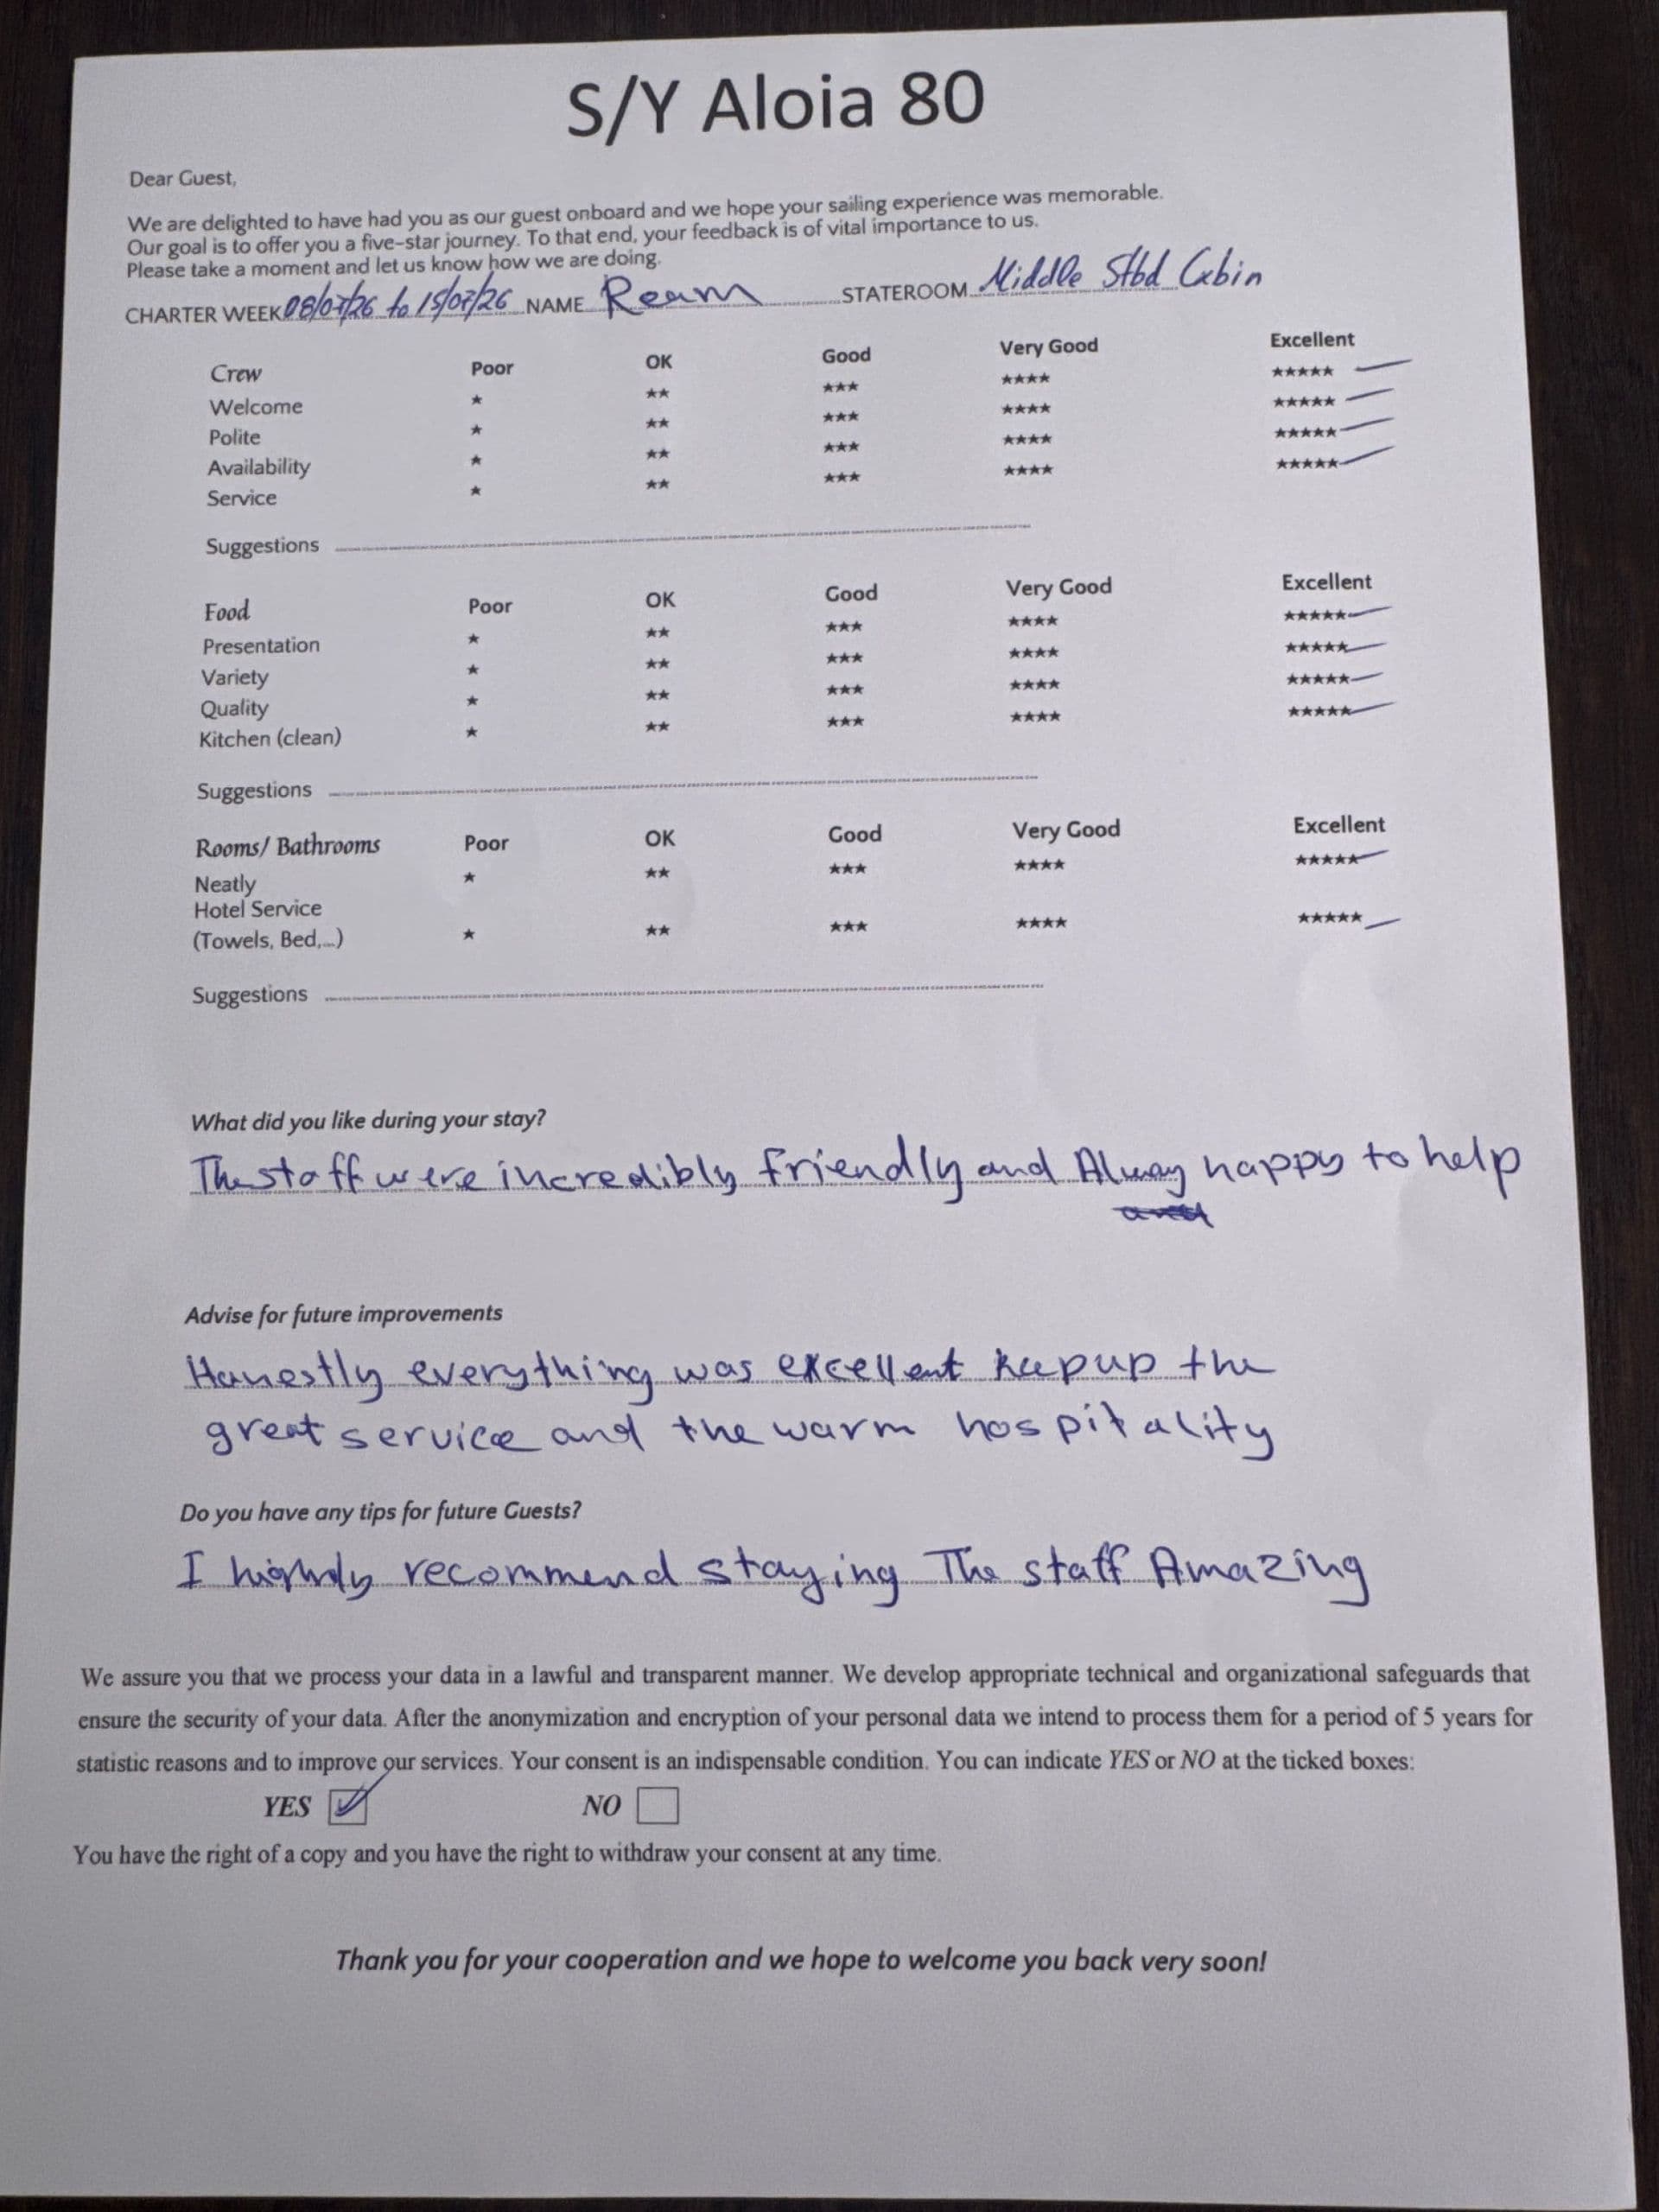 S/Y Aloia 80
Dear Guest,
We are delighted to have had you as our guest onboard and we hope your sailing experience was memorable.
Our goal is to offer you a five-star journey. To that end, your feedback is of vital importance to us.
Please take a moment and let us know how we are doing.
CHARTER WEEK 08/07/26 to 15/07/26 NAME Ream STATEROOM Middle Stbd Cabin
Crew Poor OK Good Very Good Excellent
Welcome ★ ★★ ★★★ ★★★★ ★★★★★
Polite ★ ★★ ★★★ ★★★★ ★★★★★
Availability ★ ★★ ★★★ ★★★★ ★★★★★
Service ★ ★★ ★★★ ★★★★ ★★★★★
Suggestions
Food Poor OK Good Very Good Excellent
Presentation ★ ★★ ★★★ ★★★★ ★★★★★
Variety ★ ★★ ★★★ ★★★★ ★★★★★
Quality ★ ★★ ★★★ ★★★★ ★★★★★
Kitchen (clean) ★ ★★ ★★★ ★★★★ ★★★★★
Suggestions
Rooms/ Bathrooms Poor OK Good Very Good Excellent
Neatly ★ ★★ ★★★ ★★★★ ★★★★★
Hotel Service
(Towels, Bed,...) ★ ★★ ★★★ ★★★★ ★★★★★
Suggestions
What did you like during your stay?
The staff were incredibly friendly and Alway happy to help
Advise for future improvements
Honestly everything was excellent keep up the
great service and the warm hospitality
Do you have any tips for future Guests?
I recommend staying The staff Amazing
We assure you that we process your data in a lawful and transparent manner. We develop appropriate technical and organizational safeguards that
ensure the security of your data. After the anonymization and encryption of your personal data we intend to process them for a period of 5 years for
statistic reasons and to improve our services. Your consent is an indispensable condition. You can indicate YES or NO at the ticked boxes:
YES NO
You have the right of a copy and you have the right to withdraw your consent at any time.
Thank you for your cooperation and we hope to welcome you back very soon!